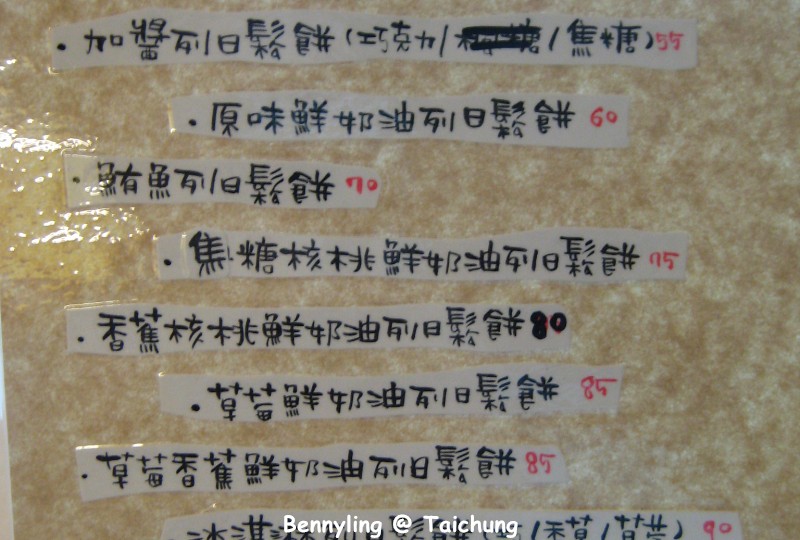 ·加醬列日鬆餅(巧克力/焦糖)55
·原味鮮奶油列日鬆餅 60
·鮪魚列日鬆餅 70
·焦糖核桃鮮奶油列日鬆餅 75
·香蕉核桃鮮奶油列日鬆餅80
·草莓鮮奶油列日鬆餅 85
·草莓香蕉鮮奶油列日鬆餅 85
90
Bennyling @ Taichung